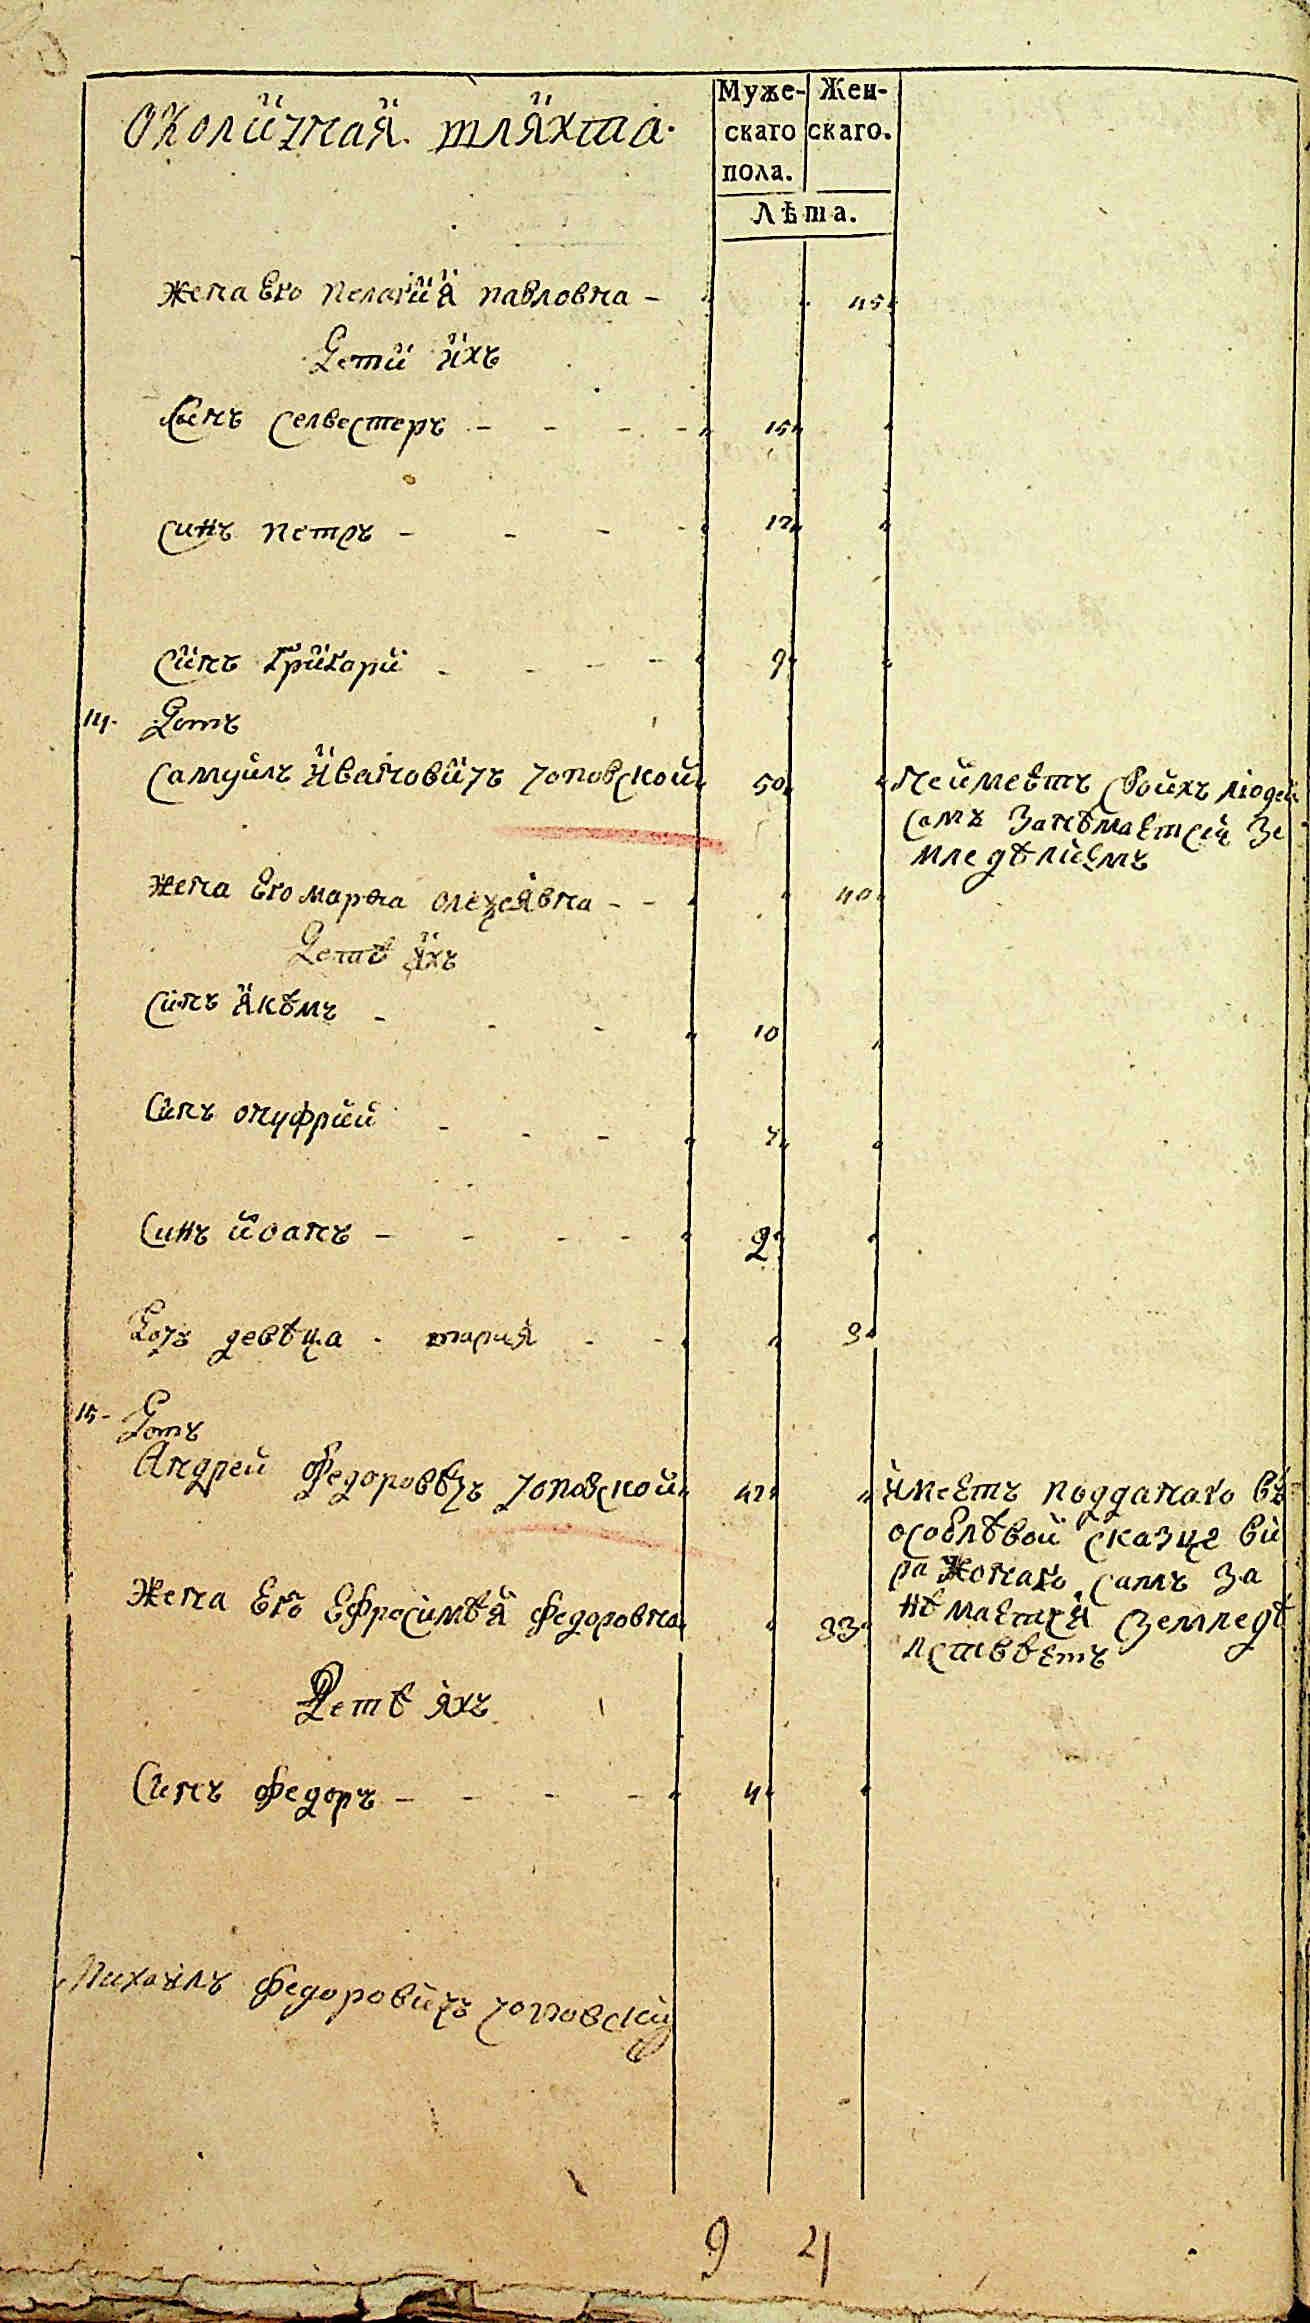 Околичная шляхта.
Муже- Жен-
скаго скаго.
пола.
Лѣта.
Жена Его Пелагия Павловна - 45
Дети ихъ
Сынъ Селвестеръ - - - - 15
Синъ Петръ - - - - 12
Синъ Григори - - - - 9
14. Домъ
Самуилъ Ивановичъ Чоповской 50 неймеетъ своихъ людей
самъ занѣмаетси зе
мледѣлиемъ
Жена Его Марфа Олексѣявна - - 40
Детѣ ихъ
Синъ Якѣмъ - - - 10
Синъ Онуфрий - - - 7
Синъ Иоанъ - - - - 2
Дочь девѣца - Мария - - 3
15- Домъ
Андрей Федоровѣчъ Чоповской 42 имеетъ подданаго въ
особлѣвой сказце ви
ражонаго, самъ за
нѣмается земледѣ
Жена Его Ефросимѣя Федоровна 33
Детѣ ихъ
Синъ Федоръ - - - - 4
Михаилъ Федоровичъ Чоповский
9 4